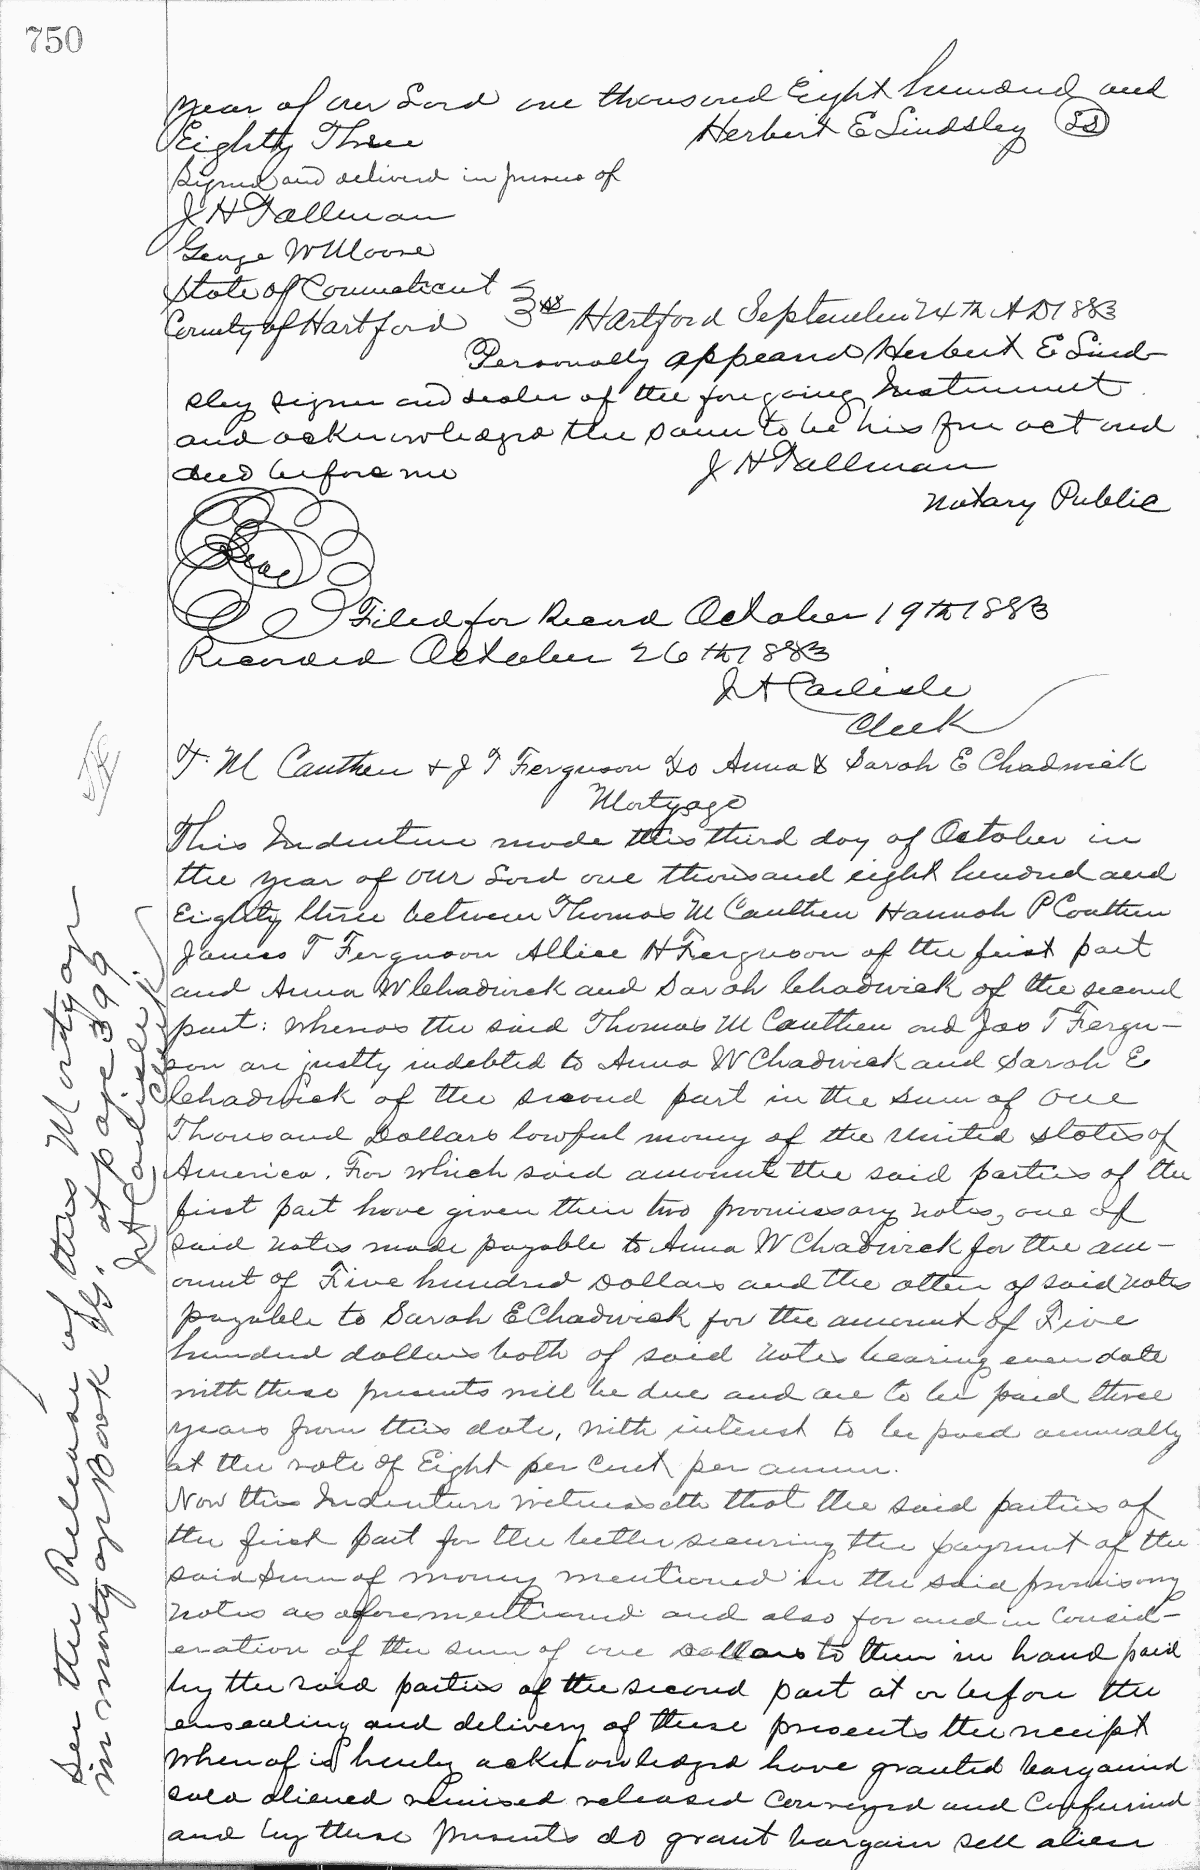 750
year of our Lord one thousand Eight hundred and
Eighty Three Herbert E Lindsley LS
Signed and delivered in presence of
J H Tallman
George W Moore
State of Connecticut
County of Hartford Hartford September 24th AD 1883
Personally appeared Herbert E Lind-
sley signer and sealer of the foregoing Instrument
and acknowledged the same to be his free act and
deed before me J H Tallman
Notary Public
Seal
Filed for Record October 19th 1883
Recorded October 26th 1883
J A Carlisle
Clerk
T. M Cauthen & J T Ferguson to Anna & Sarah E Chadwick
Mortgage
This Indenture made this third day of October in
the year of our Lord one thousand eight hundred and
Eighty three between Thomas M Cauthen Hannah P Cauthen
James T Ferguson Allice H Ferguson of the first part
and Anna W Chadwick and Sarah Chadwick of the second
part: Whereas the said Thomas M Cauthen and Jas T Fergu-
son are justly indebted to Anna W Chadwick and Sarah E
Chadwick of the second part in the sum of One
Thousand Dollars lawful money of the United States of
America. For which said amount the said parties of the
first part have given their two promissary notes, one of
said notes made payable to Anna W Chadwick for the am-
ount of Five hundred Dollars and the other of said notes
payable to Sarah E Chadwick for the amount of Five
hundred dollars both of said notes bearing even date
with these presents will be due and are to be paid three
years from this date, with interest to be paid annually
at the rate of Eight per cent per annum.
Now this Indenture witnesseth that the said parties of
the first part for the better securing the payment of the
said sum of money mentioned in the said promisory
notes as aforementioned and also for and in consid-
eration of the sum of one Dollars to them in hand paid
by the said parties of the second part at or before the
ensealing and delivery of these presents the receipt
whereof is hereby acknowledged have granted bargained
sold aliened remised released conveyed and confirmed
and by these presents do grant bargain sell alien
See the Release of this Mortgage
in Mortgage Book at page 399
J A Carlisle
Clerk